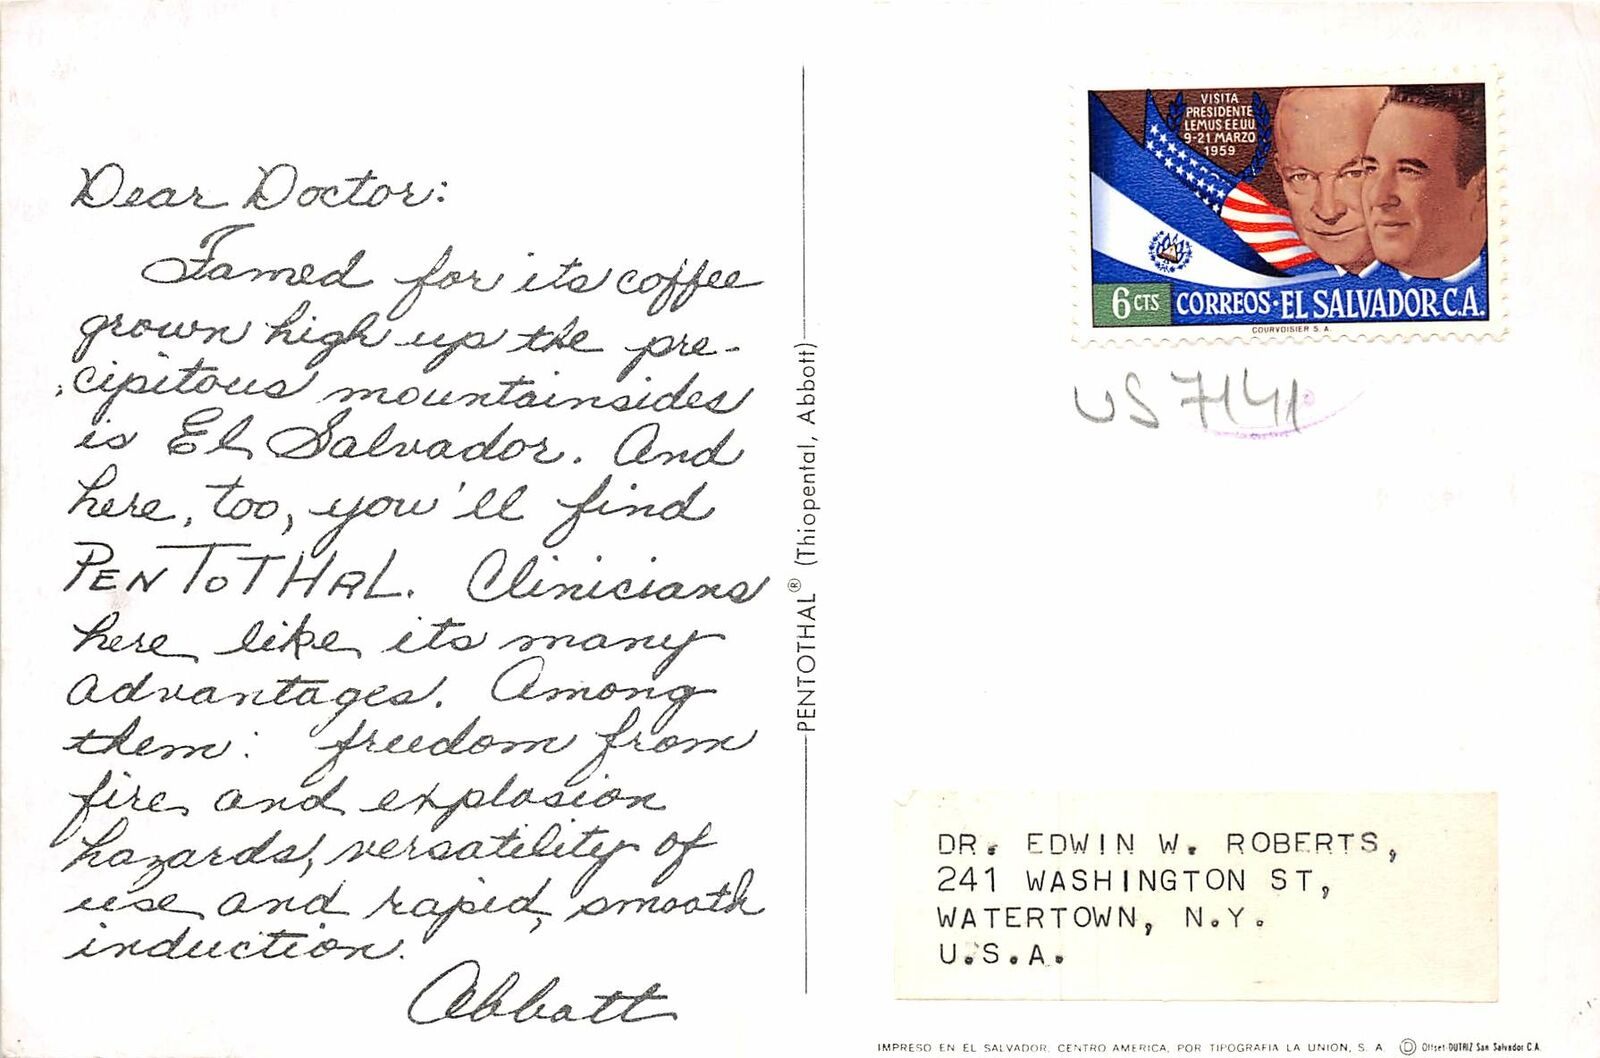 Dear Doctor:
Famed for its coffee
grown high up the pre-
cipitous mountainsides
is El Salvador. And
here, too, you'll find
PENTOTHAL. Clinicians
here like its many
advantages. Among
them: freedom from
fire and explosion
hazards, versatility of
use and rapid, smooth
induction.
Abbott
PENTOTHAL® (Thiopental, Abbott)
VISITA
PRESIDENTE
LEMUS EE.UU
9-21 MARZO
1959
6 CTS CORREOS·EL SALVADOR C.A.
COURVOISIER S.A.
US 7141
DR. EDWIN W. ROBERTS,
241 WASHINGTON ST,
WATERTOWN, N.Y.
U.S.A.
IMPRESO EN EL SALVADOR, CENTRO AMERICA, POR TIPOGRAFIA LA UNION, S. A. Ⓓ Offset-DUTRIZ San Salvador C.A.